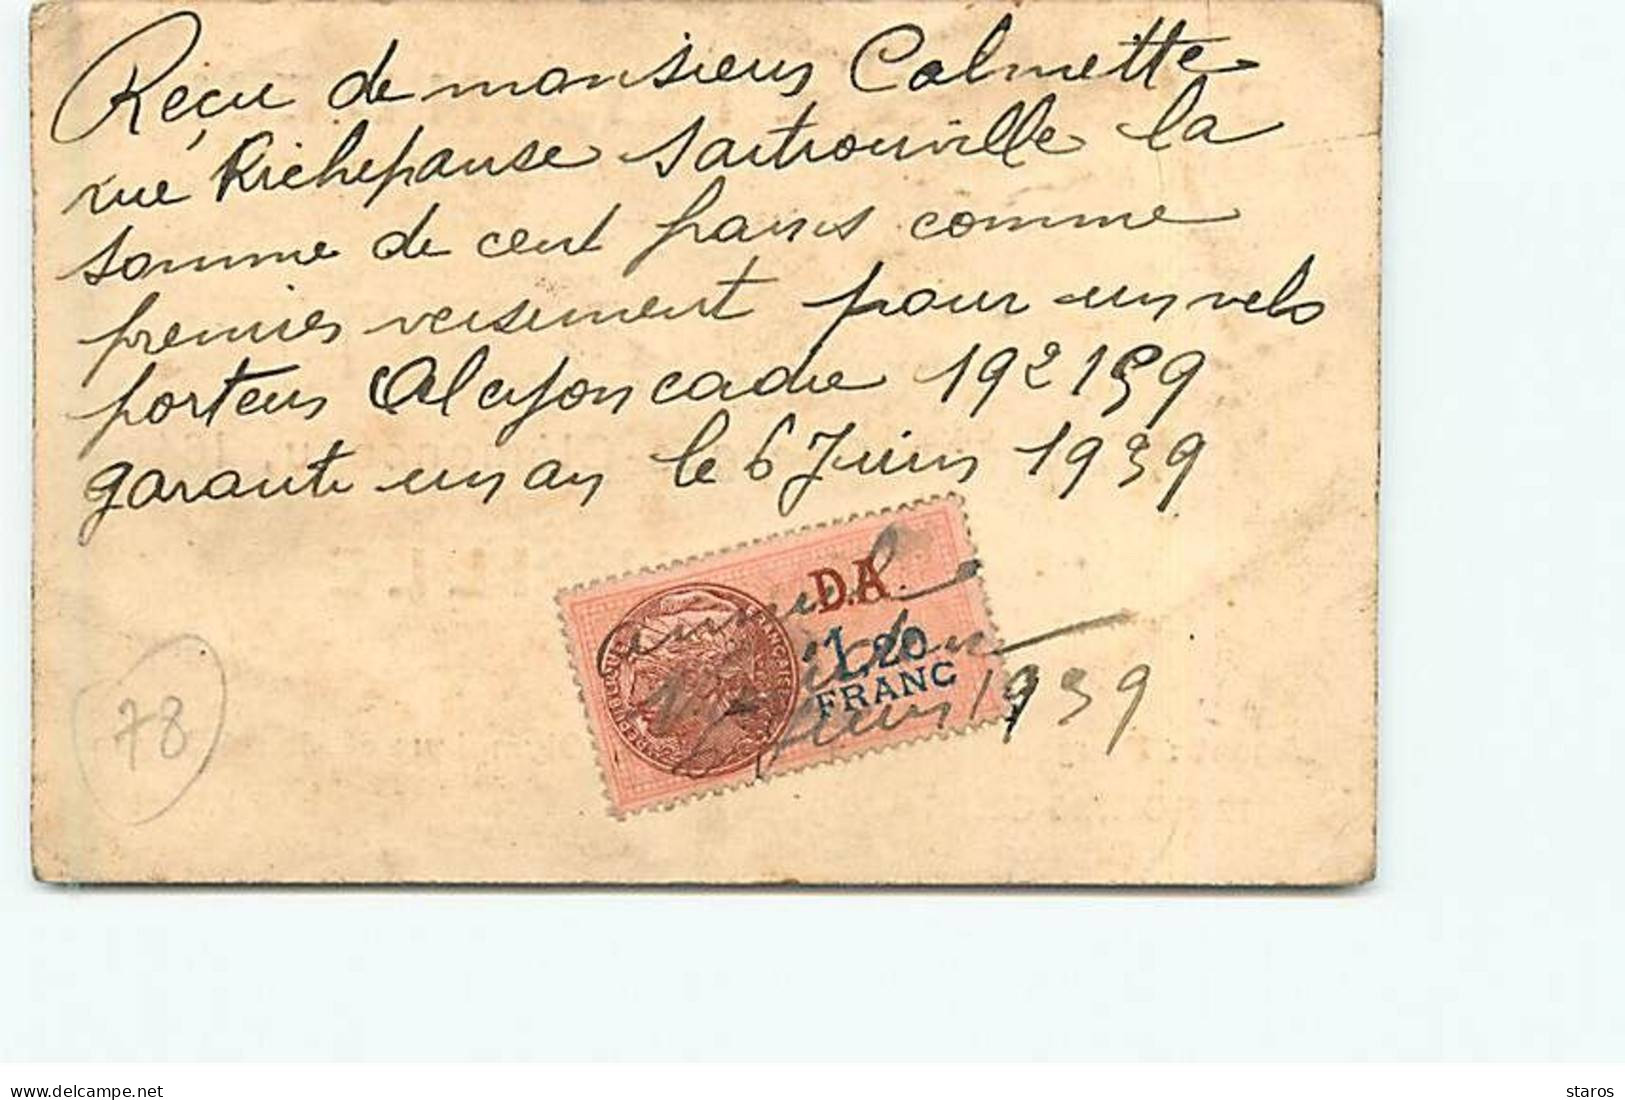 Reçu de monsieur Calmette
rue Richepanse Sartrouville la
somme de cent francs comme
premier versement pour un velo
porteur Alcyon cadre 192159
garantie un an le 6 Juin 1939
D.A.
1,20
FRANC
REPUBLIQUE FRANÇAISE
6 Juin 1939
78